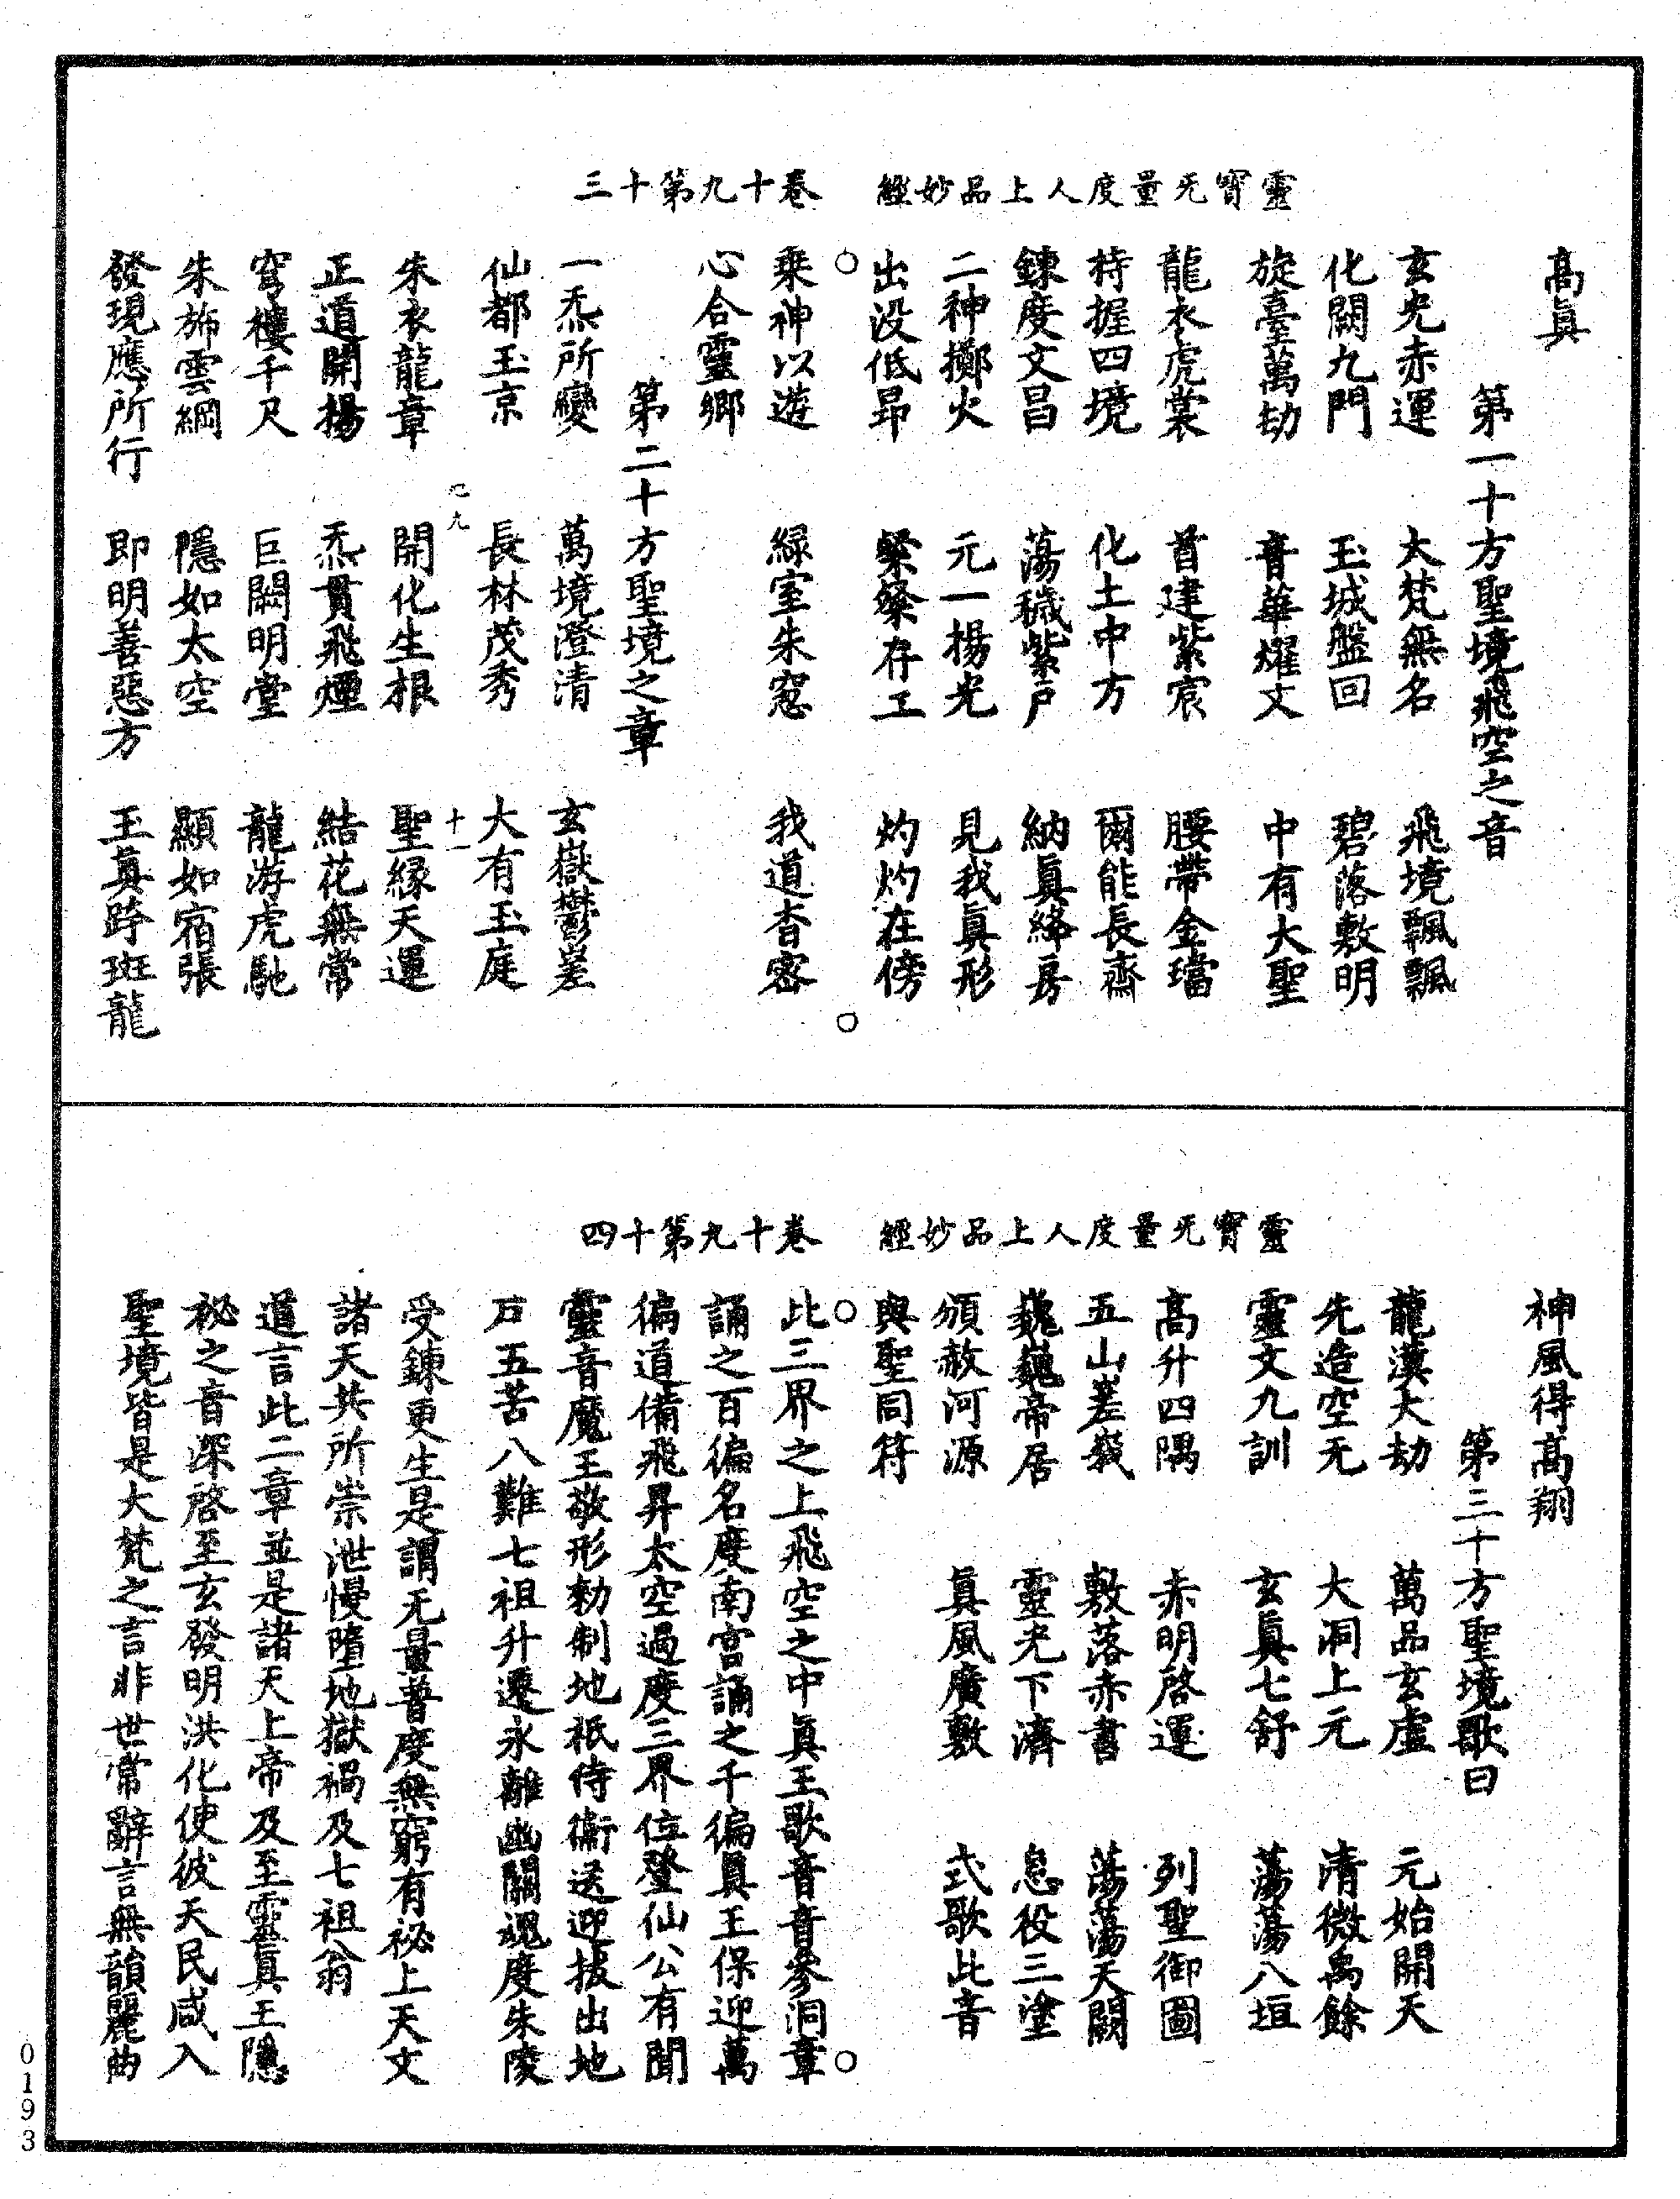 靈寶无量度人上品妙經　卷十九第十三
高眞
第一十方聖境飛空之音
玄光赤運　大梵無名　飛境飄飄
化闢九門　玉城盤回　碧落敷明
旋臺萬劫　音華燿文　中有大聖
龍衣虎裳　首建紫宸　腰帶金璫
持握四境　化土中方　爾能長齋
鍊度文昌　蕩穢紫戶　納眞絳房
二神擲火　元一揚光　見我眞形
出没低昂　粲粲存工　灼灼在傍
乘神以遊　綠室朱窻　我道杳密
心合靈鄉
第二十方聖境之章
一炁所變　萬境澄清　玄嶽鬱崖
仙都玉京　長林茂秀　大有玉庭
巳九　十一
朱衣龍章　開化生根　聖緣天運
正道開揚　炁貫飛煙　結花無常
穹樓千尺　巨闕明堂　龍游虎馳
朱斾雲綱　隱如太空　顯如宿張
發現應所行　即明善惡方　玉眞跨斑龍
靈寶无量度人上品妙經　卷十九第十四
神風得高翔
第三十方聖境歌曰
龍漢大劫　萬品玄虛　元始開天
先造空无　大洞上元　清微禹餘
靈文九訓　玄眞七舒　蕩蕩八垣
高升四隅　赤明啓運　列聖御圖
五山差峩　敷落赤書　蕩蕩天闢
巍巍帝居　靈光下濟　息役三塗
頒赦河源　眞風廣敷　式歌此音
與聖同符
此三界之上飛空之中眞王歌音音參洞章
誦之百徧名度南宮誦之千徧眞王保迎萬
徧道備飛昇太空過度三界位登仙公有聞
靈音魔王敬形勑制地祇侍衞送迎拔出地
戸五苦八難七祖升遷永離幽關魂度朱陵
受鍊更生是謂无量普度無窮有祕上天文
諸天共所崇泄慢墮地獄禍及七祖翁
道言此二章並是諸天上帝及至靈眞王隱
祕之音深啓至玄發明洪化使彼天民咸入
聖境皆是大梵之言非世常辭言無韻麗曲
0193